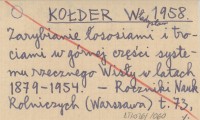 KOŁDER Wł. 1958
Zarybianie łososiami i tro-
ciami w górnej części syste-
mu rzecznego Wisły w latach
1879-1954. - Roczniki Nauk
Rolniczych (Warszawa) t. 73,